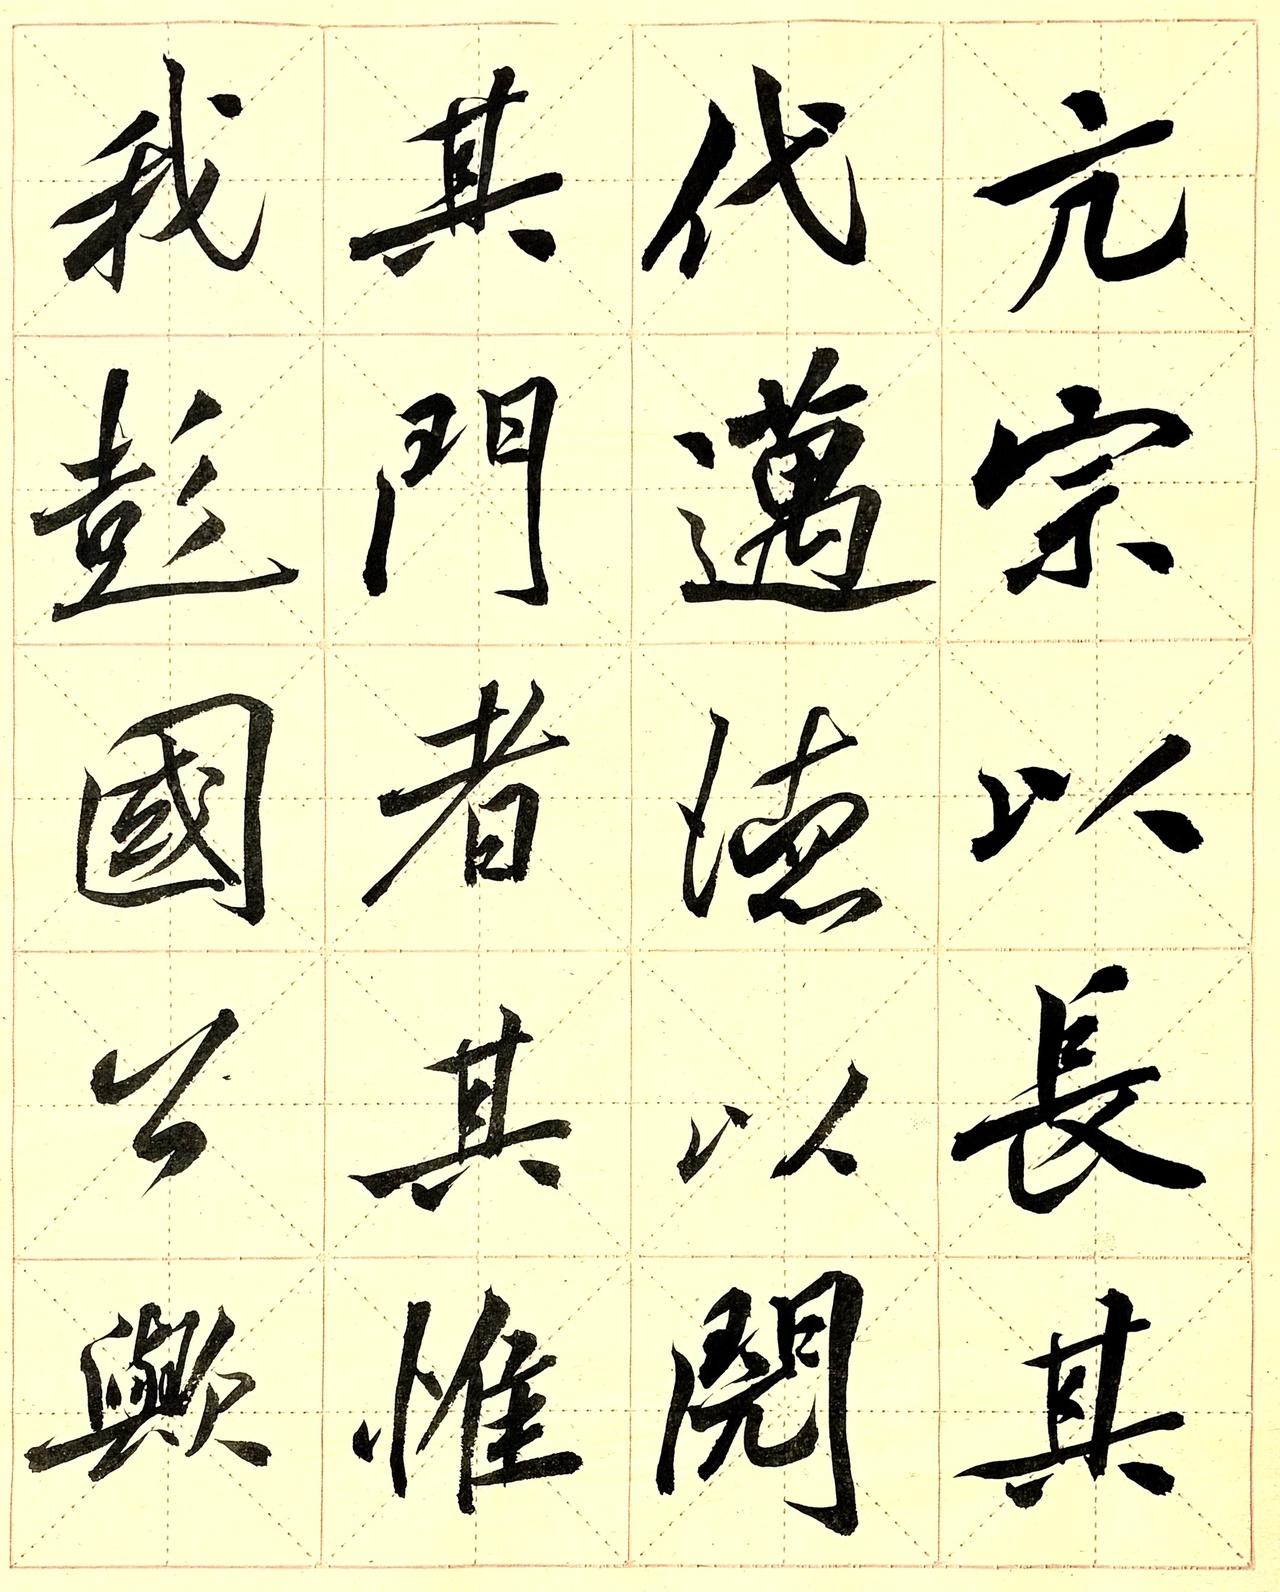 亢宗以長其
代邁德以閱
其門者其惟
我彭國公歟